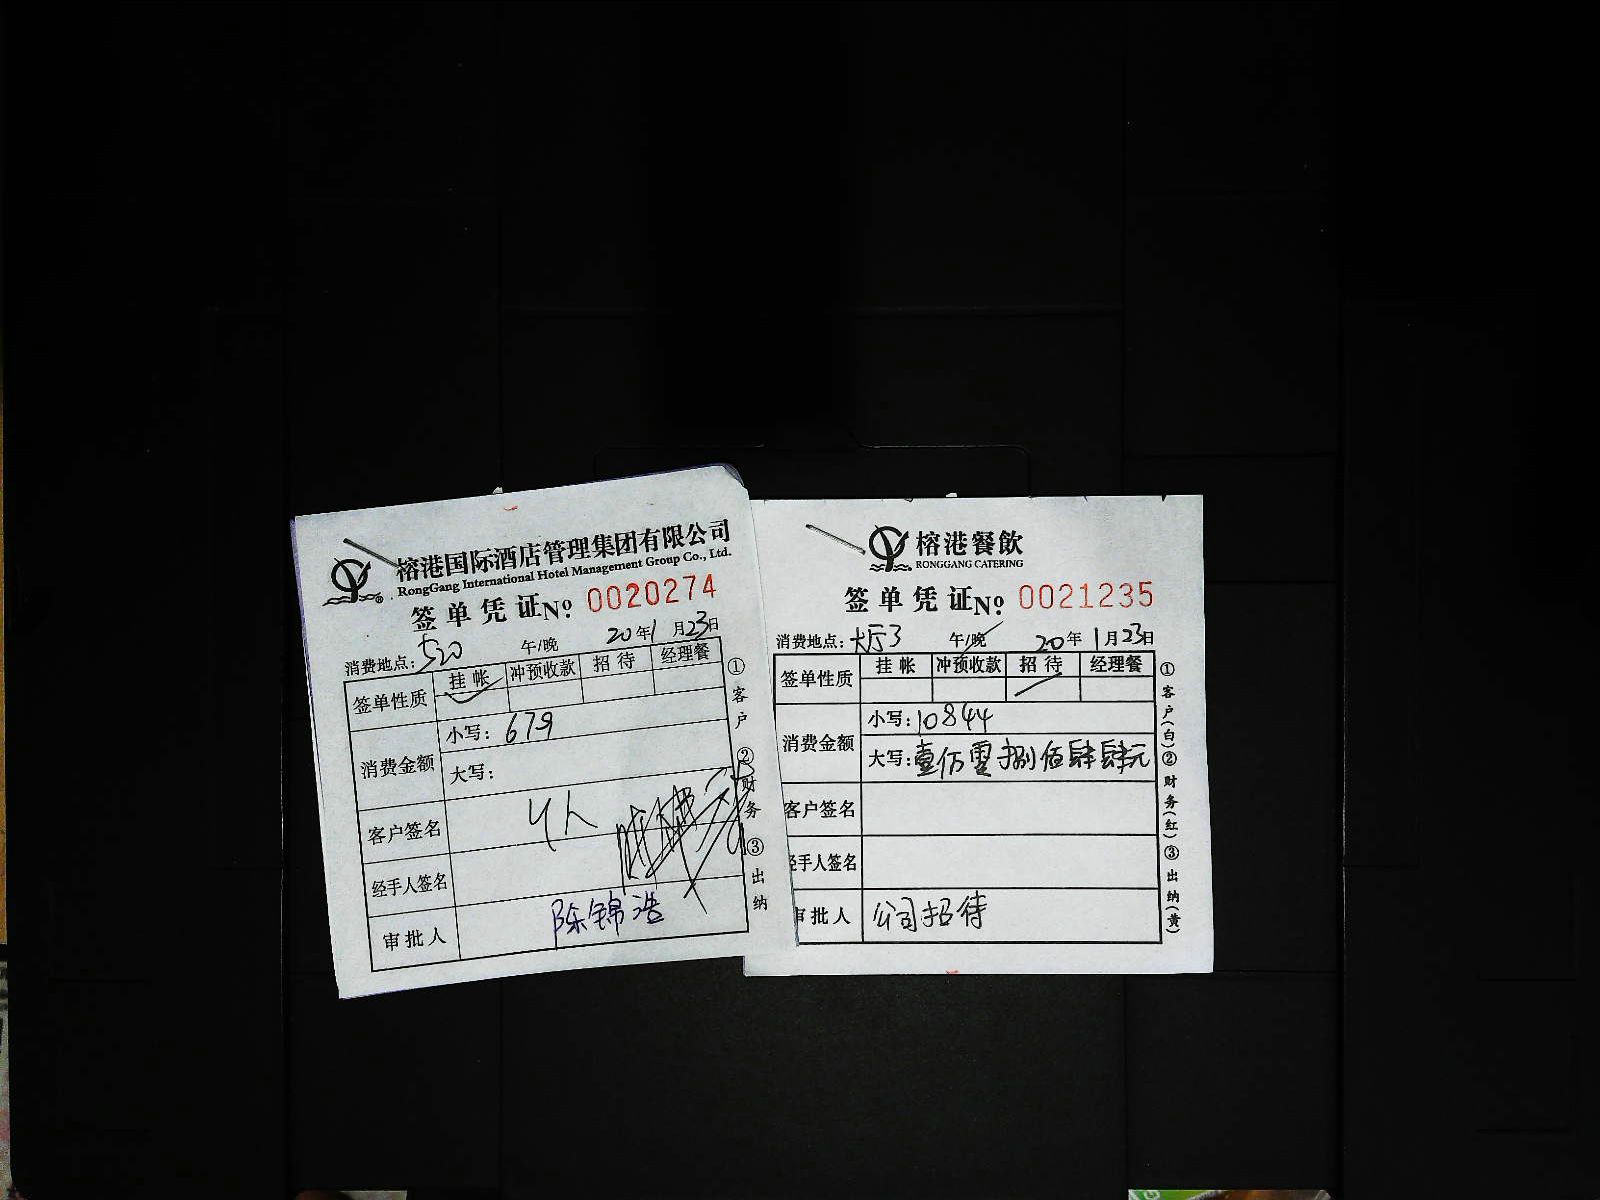 榕港国际酒店管理集团有限公司
RongGang International Hotel Management Group Co., Ltd.
签单凭证 № 0020274
消费地点：520 午/晚 20年1月23日
签单性质 挂帐 冲预收款 招待 经理餐
消费金额 小写：679
大写：
客户签名 4人
经手人签名
审批人 陈锦浩
①客户 ②财务 ③出纳
榕港餐飲
RONGGANG CATERING
签单凭证 № 0021235
消费地点：大厅3 午/晚 20年1月23日
签单性质 挂帐 冲预收款 招待 经理餐
消费金额 小写：10844
大写：壹仿零捌佰肆肆元
客户签名
经手人签名
审批人 公司招待
①客户(白)②财务(红)③出纳(黄)